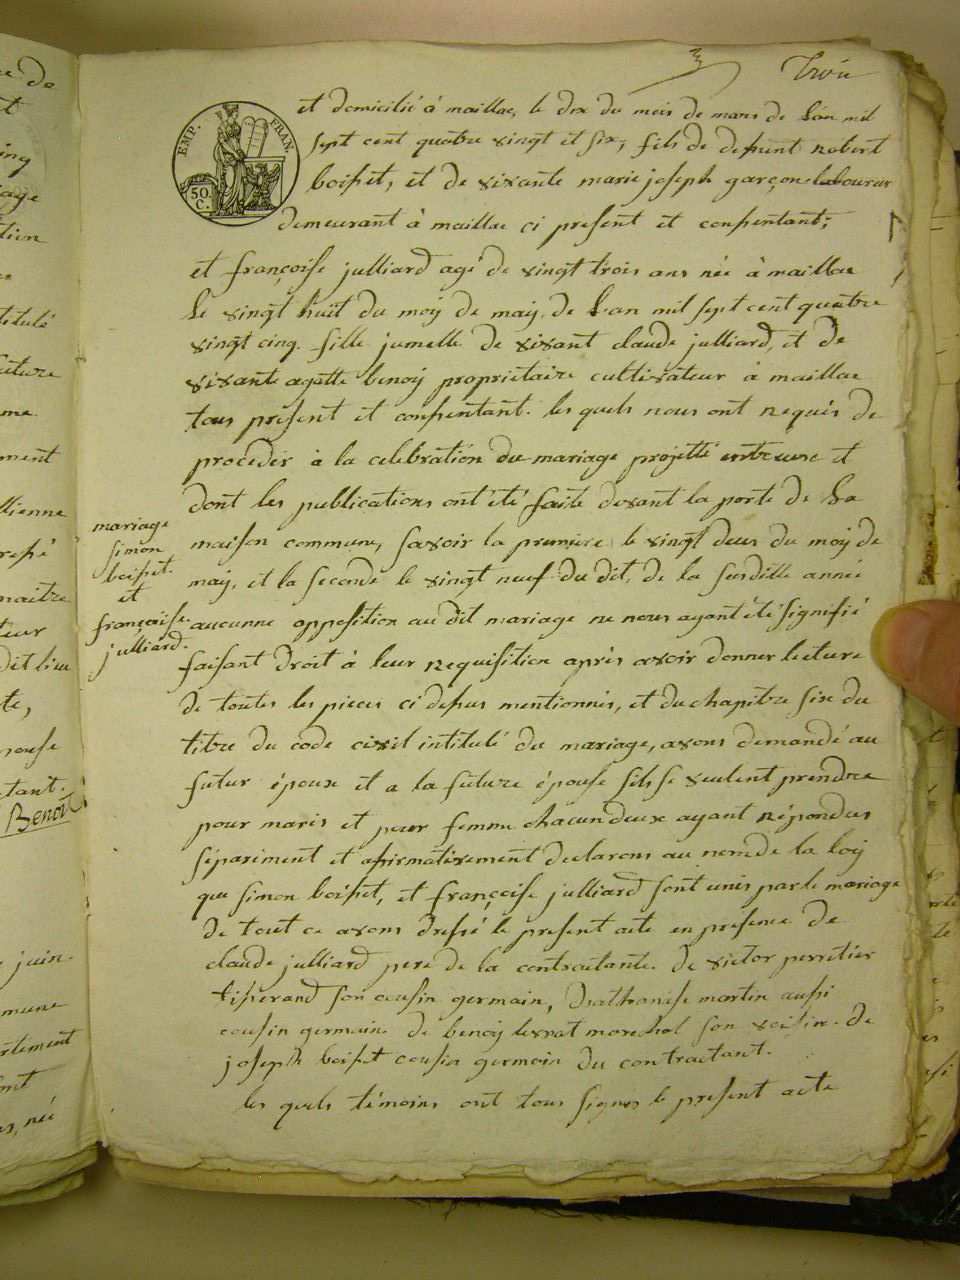 Trois
EMP. FRAN.
50
C.
et domicilié à maillac, le dix du mois de mars de L'an mil
sept cent quatre vingt et six, fils de defunt robert
boisset, et de vivante marie joseph garçon laboureur
demeurant à maillac ci present et consentant;
et françoise julliard agé de vingt trois ans née à maillac
le vingt huit du moÿ de maÿ de L'an mil sept cent quatre
vingt cinq. fille jumelle de vivant claude julliard, et de
vivante agatte benoÿ propriétaire cultivateur à maillac
tous présent et consentant. les quels nous ont requis de
procéder à la celebration du mariage projetté entreuxe et
dont les publications ont été faite devant la porte de La
maison commune, savoir la premiere le vingt deux du moÿ de
maÿ, et la seconde le vingt neuf du dit, de la susditte année
aucunne opposition au dit mariage ne nous ayant été signifié
faisant droit à leur requisition après avoir donner lecture
de toutes les pieces ci depus mentionnés, et du chapitre six du
titre du code civil intitulé du mariage, avons demandé au
futur époux et a la future épouse sils se veulent prendre
pour maris et pour femme chacun deuxe ayant répondus
séparément et afirmativement declarons au nom de la loÿ
que simon boisset, et françoise julliard sont unis par le mariage
de tout ce avons dressé le present acte en presence de
claude julliard pere de la contractante. de victor perretier
tisserand son cousin germain, d'athanase martin aussi
cousin germain. de benoÿ levrat marechal son voisin. de
joseph boisset cousin germain du contractant.
les quels témoins ont tous signes le present acte
mariage
simon
boisset.
et
françoise.
julliard.
de
age
titulé
future
me
ment
maitre
teur
dit lieu
te,
pouse
tant.
Benoit
juin.
mune
rtement
née